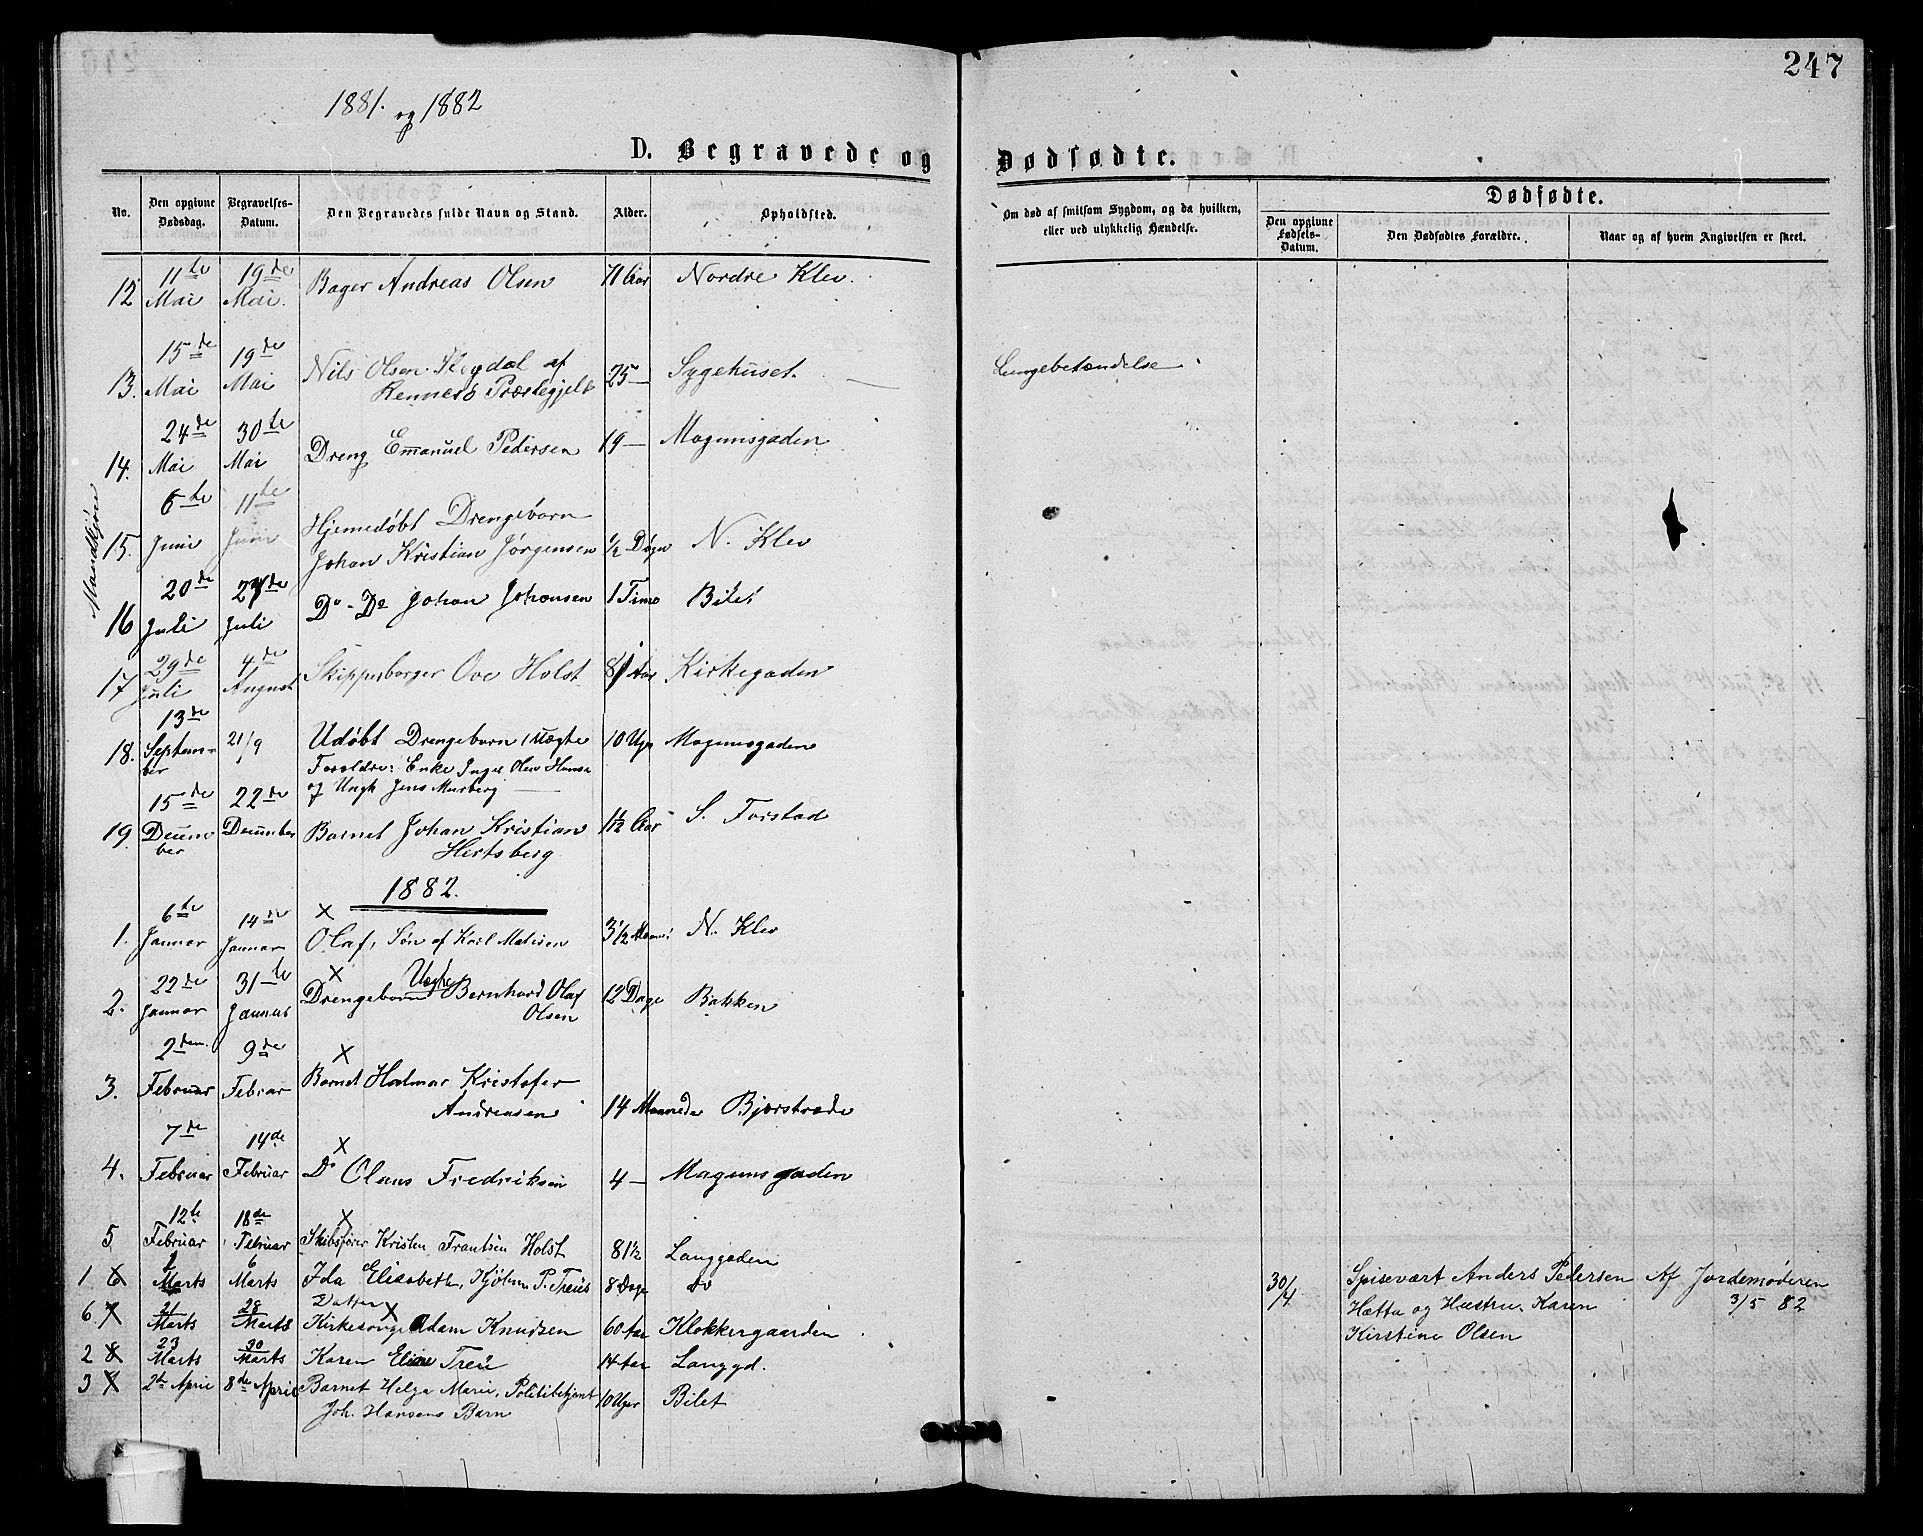 247
1881. og 1882
D. Begravede og Dødfødte.
No.
Den opgivne Dødsdag.
Begravelses-Datum.
Den Begravedes fulde Navn og Stand.
Alder.
Opholdsted.
Om død af smitsom Sygdom, og da hvilken, eller ved ulykkelig Hændelse.
Dødfødte.
Den opgivne Fødsels-Datum.
Den Dødfødtes Forældre.
Naar og af hvem Angivelsen er skeet.
Mandkjøn
12 11te Mai 19de Mai. Bager Andreas Olsen 71 Aar Nordre Klev.
13. 15de Mai 19de Mai Nils Olsen af
Præstegjeld 25 — Sygehuset. — Lungebetændelse
14. 24de Mai 30te Mai Dreng Emanuel Pedersen 19 — Magnusgaden
15. 6te Juni 11te Juni Hjemmedøbt Drengebarn
Johan Kristian Jørgensen ½ Døgn N. Klev
16 20de Juli 27de Juli Do - Do Johan Johansen 1 Time Bilet
17 29de Juli 4de August Skipperborger Ove Holst 81 Aar Kirkegaden
18. 13de September 21/9 Udøbt Drengebarn, Uægte 10 Uger Magnusgaden
Forældre: Enke Inger Olea
og Ungk Jens Murberg —
19. 15de December 22de December Barnet Johan Kristian 1½ Aar S. Forstad
Hertsberg
1882.
1. 6te Januar 14de Januar X Olaf, Søn af Karl Matisen 3½ N. Klev
2. 22de Januar 31te Januar X Drengebarn Uægte Bernhard Olaf 12 Dage Bakken
Olsen
3. 2den Februar 9de Februar X Barnet Halmar Kristofer
Andreasen 14 Maaneder Bjørstræde
4. 7de Februar 14de Februar X Do Olaus Fredriksen 4 — Magnusgaden
5 12te Februar 18de Februar X Skibsfører Kristen Frantsen Holst 81½ Langgaden
1. 6 1 Marts 6 Marts Ida Elisabeth, Kjøbm. P. Treus 8 Dage do
Datter
6. 7 21 Marts 28 Marts X Kirkesanger Adam Knudsen 60 Aar Klokkergaarden
2 8 23 Marts 30 Marts Karen Eline Treu 14 Aar Langgd.
3 2de April 8de April Barnet Helga Marie, Politibetjent 10 Uger Bilet
Joh. Hansens Barn
30/4 Spisevært Anders Pedersen Af Jordemoderen
Hætta og Hustru Karen 3/5 82
Kirstine Olsen